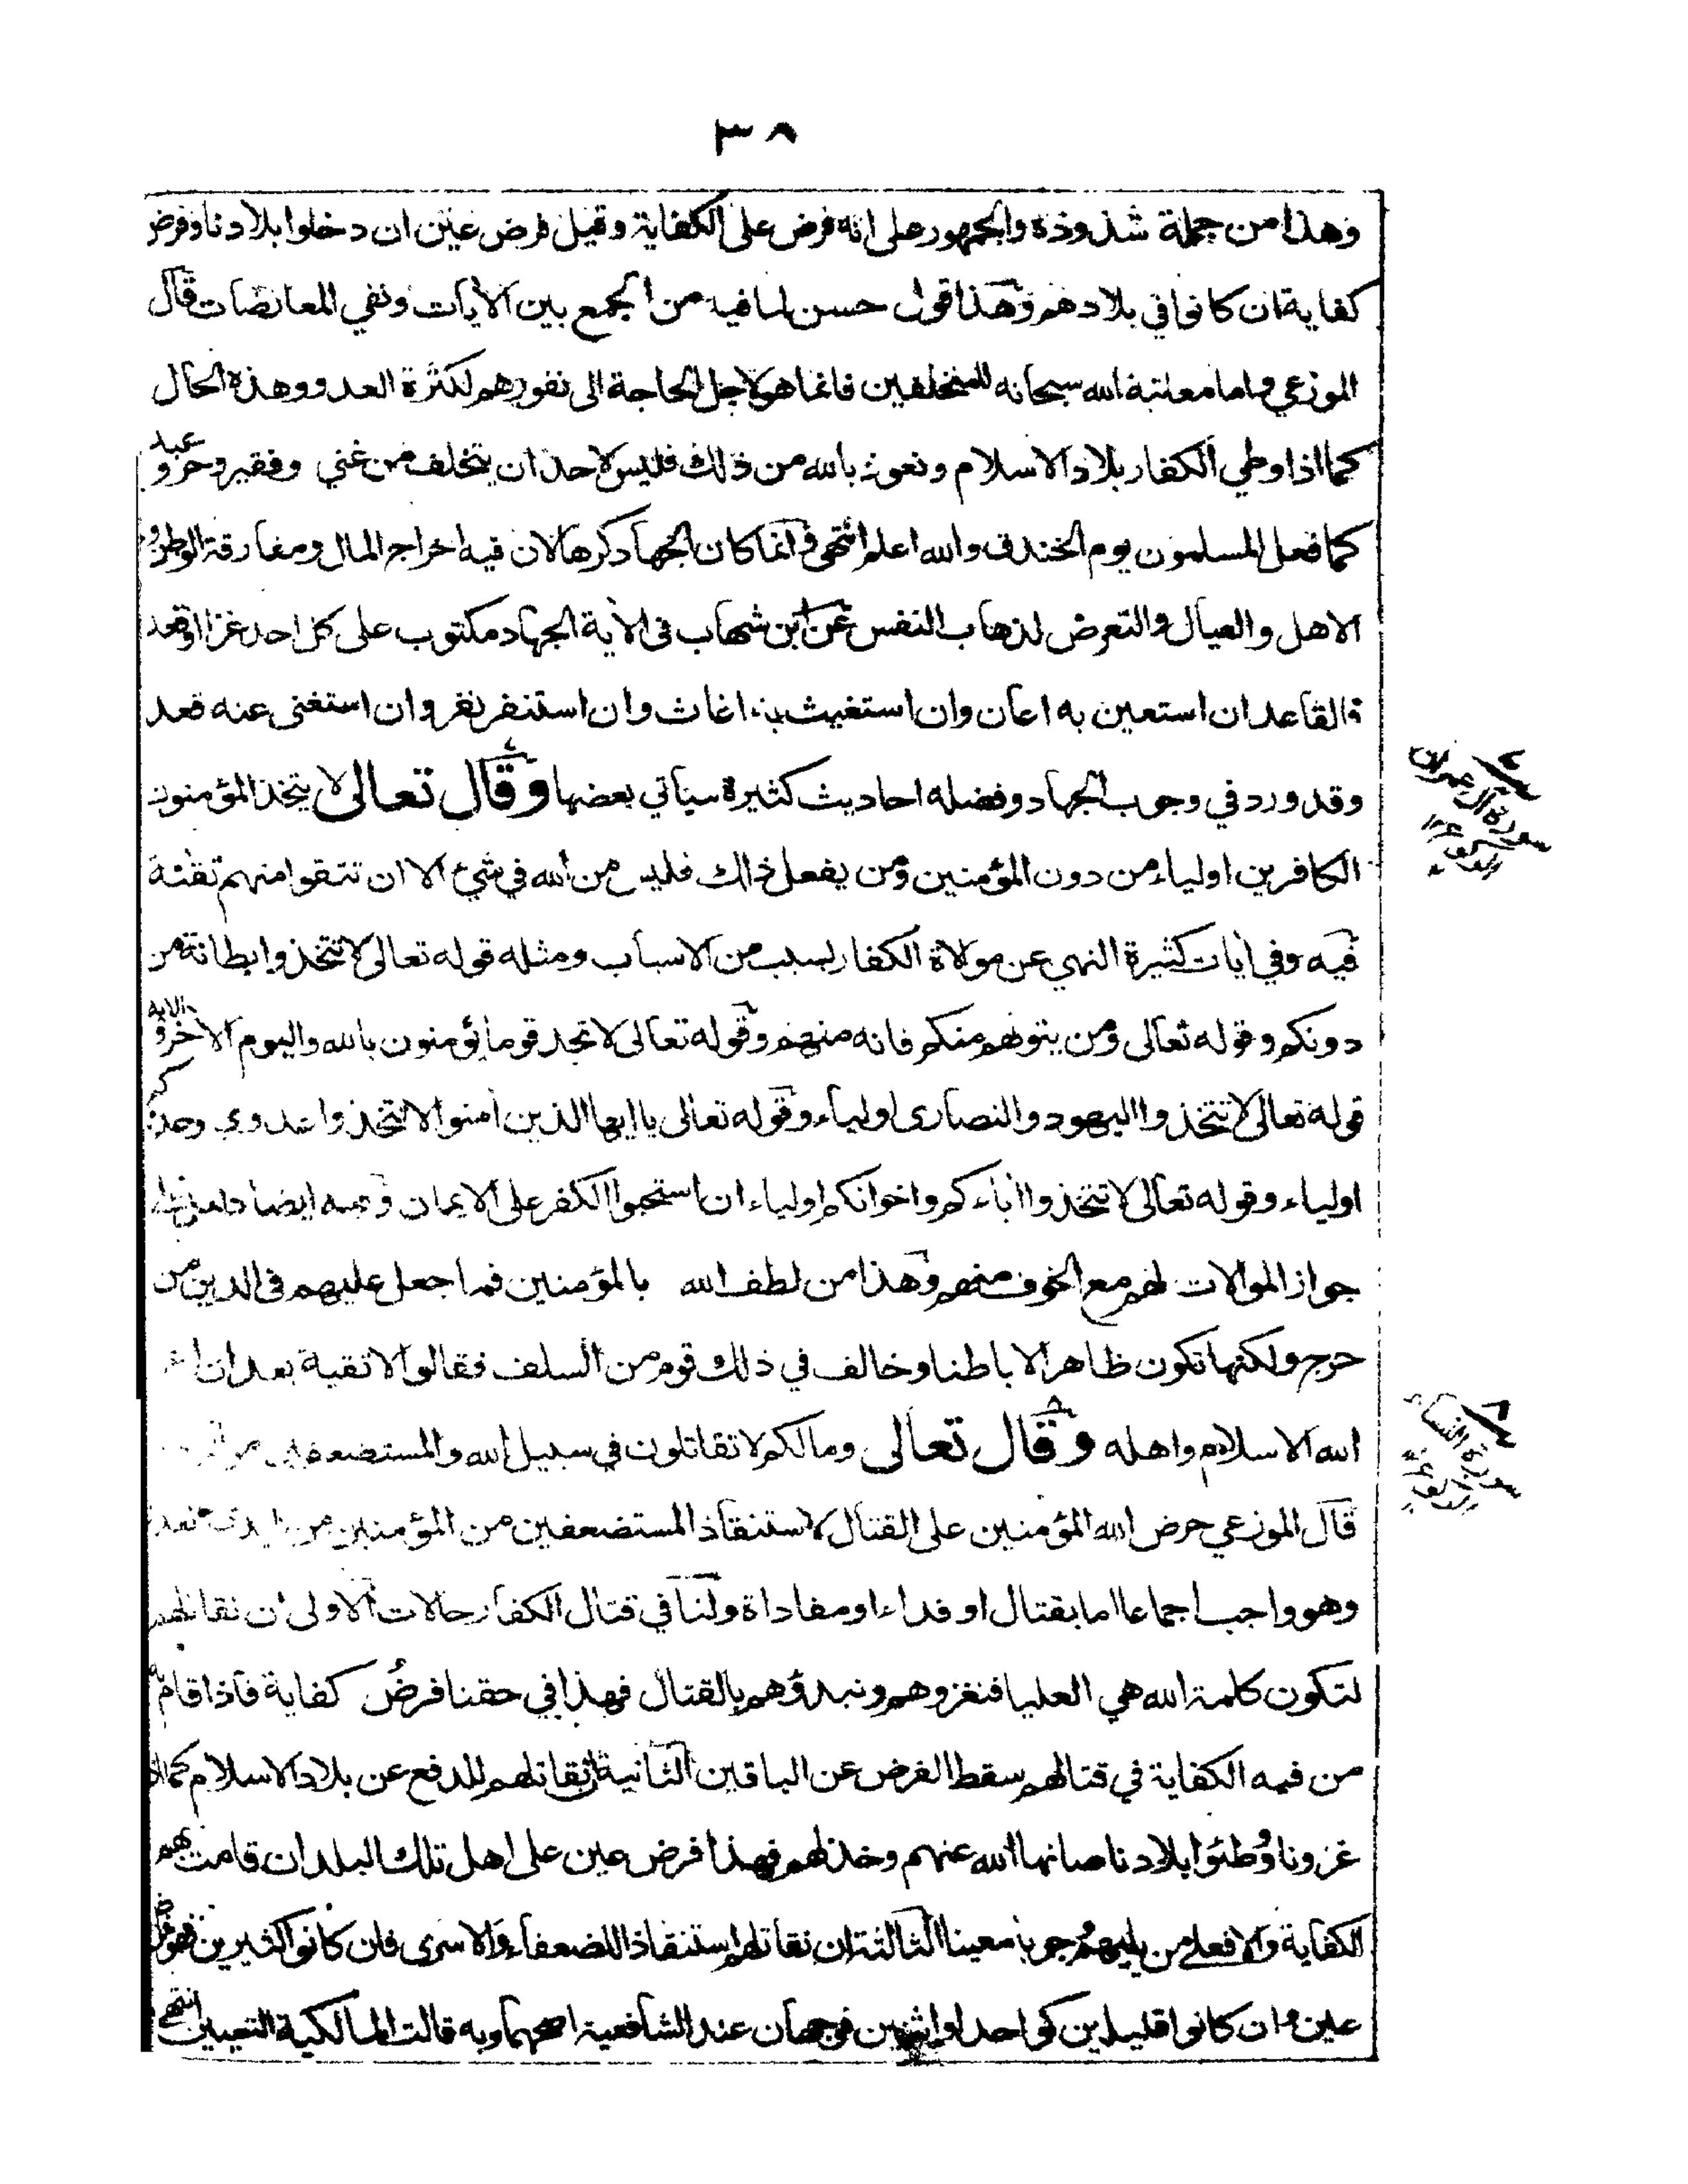 ٣٨
وهذا من جملة شذوذه والجمهور على انه فرض على الكفاية وقيل فرض عين ان دخلوا بلادنا وفرض
كفاية ان كانوا في بلادهم وهذا قول حسن لما فيه من الجمع بين الآيات ونفي المعارضات قال
الموزعي واما معاتبة الله سبحانه للمتخلفين فانما هو لاجل الحاجة الى نفورهم لكثرة العدو وهذه الحال
كما اذا وطي الكفار بلاد الاسلام ونعوذ بالله من ذلك فليس لاحد ان يتخلف من غني وفقير وحر وعبد
كما فعل المسلمون يوم الخندق والله اعلم انتهى وانما كان الجهاد كرها لان فيه اخراج المال ومفارقة الوطن و
الاهل والعيال والتعرض لذهاب النفس عن ابن شهاب في الآية الجهاد مكتوب على كل احد غزا او قعد
فالقاعد ان استعين به اعان وان استغيث به اغاث وان استنفر نفر وان استغنى عنه قعد
وقد ورد في وجوب الجهاد وفضله احاديث كثيرة سيأتي بعضها وقال تعالى لا يتخذ المؤمنون
الكافرين اولياء من دون المؤمنين ومن يفعل ذالك فليس من الله في شيء الا ان تتقوا منهم تقئة
فيه وفي آيات كثيرة النهي عن مولاة الكفار لسبب من الاسباب ومثله قوله تعالى لا تتخذوا بطانة من
دونكم وقوله تعالى ومن يتولهم منكم فانه منهم وقوله تعالى لا تجد قوما يؤمنون بالله واليوم الاخر الآية و
قوله تعالى لا تتخذوا اليهود والنصارى اولياء وقوله تعالى يا ايها الذين آمنوا لا تتخذوا عدوي وعدوكم
اولياء وقوله تعالى لا تتخذوا آباءكم واخوانكم اولياء ان استحبوا الكفر على الايمان وفيه ايضا دليل على
جواز الموالات لهم مع الخوف منهم وهذا من لطف الله بالمؤمنين فما جعل عليهم في الدين من
حرج ولكنها تكون ظاهرا لا باطنا وخالف في ذلك قوم من السلف فقالوا لا تقية بعد ان
الله الاسلام واهله وقال تعالى وما لكم لا تقاتلون في سبيل الله والمستضعفين من
قال الموزعي حرض الله المؤمنين على القتال لاستنقاذ المستضعفين من المؤمنين من
وهو واجب اجماعا اما بقتال او فداء او مفاداة ولنا في قتال الكفار حالات الاولى ان نقاتلهم
لتكون كلمة الله هي العليا فنغزوهم ونبدؤهم بالقتال فهذا في حقنا فرض كفاية فاذا قام به
من فيه الكفاية في قتالهم سقط الفرض عن الباقين الثانية ان نقاتلهم للدفع عن بلاد الاسلام كما اذا
غزونا ووطئوا بلادنا صانها الله عنهم وخذلهم فهذا فرض عين على اهل تلك البلد ان قامت بهم
الكفاية والا فعلى من يليهم وجوبا معينا الثالثة ان نقاتلهم استنقاذا للضعفاء والاسرى فان كانوا كثيرين فهو فرض
عين وان كانوا قليلين كواحد او اثنين فوجهان عند الشافعية اصحهما وبه قالت المالكية التعيين انتهى
سورة آل عمران
سورة النساء